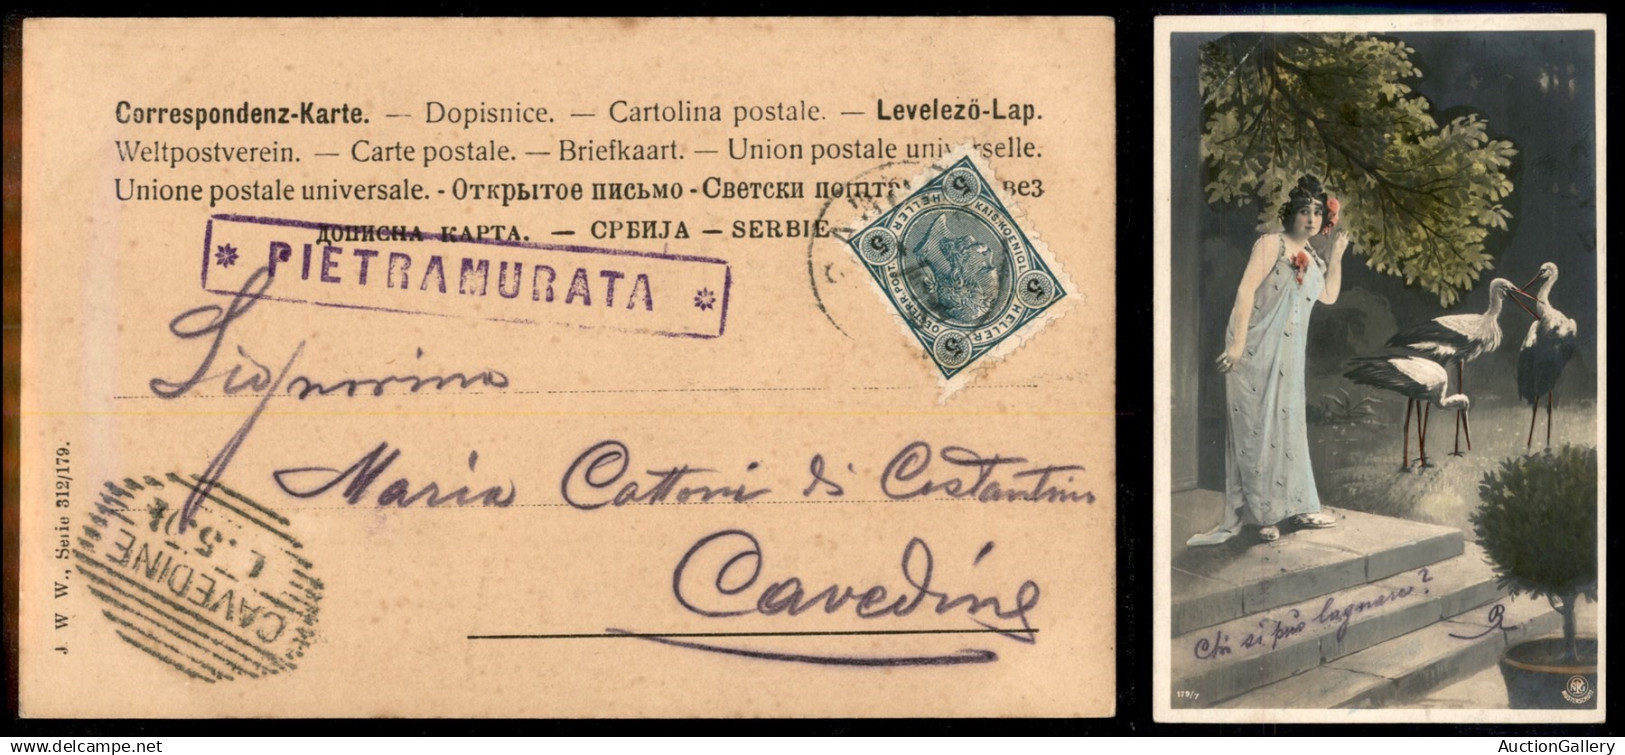 Correspondenz-Karte. — Dopisnice. — Cartolina postale. — Levelezö-Lap.
Weltpostverein. — Carte postale. — Briefkaart. — Union postale universelle.
Unione postale universale. - Открытое письмо - Свeтски
дописна карта. — СРБИЈА — SERBIE
* PIETRAMURATA *
5 5 5 5
KAIS. KOENIGL. OESTERR. POST.
HELLER HELLER
Signorina
Maria Cattoni di Costantino
Cavedine
CAVEDINE
1.5.04
J. W W., Serie 312/179.
Chi si può lagnare?
R
179/7
NPG
AuctionGallery